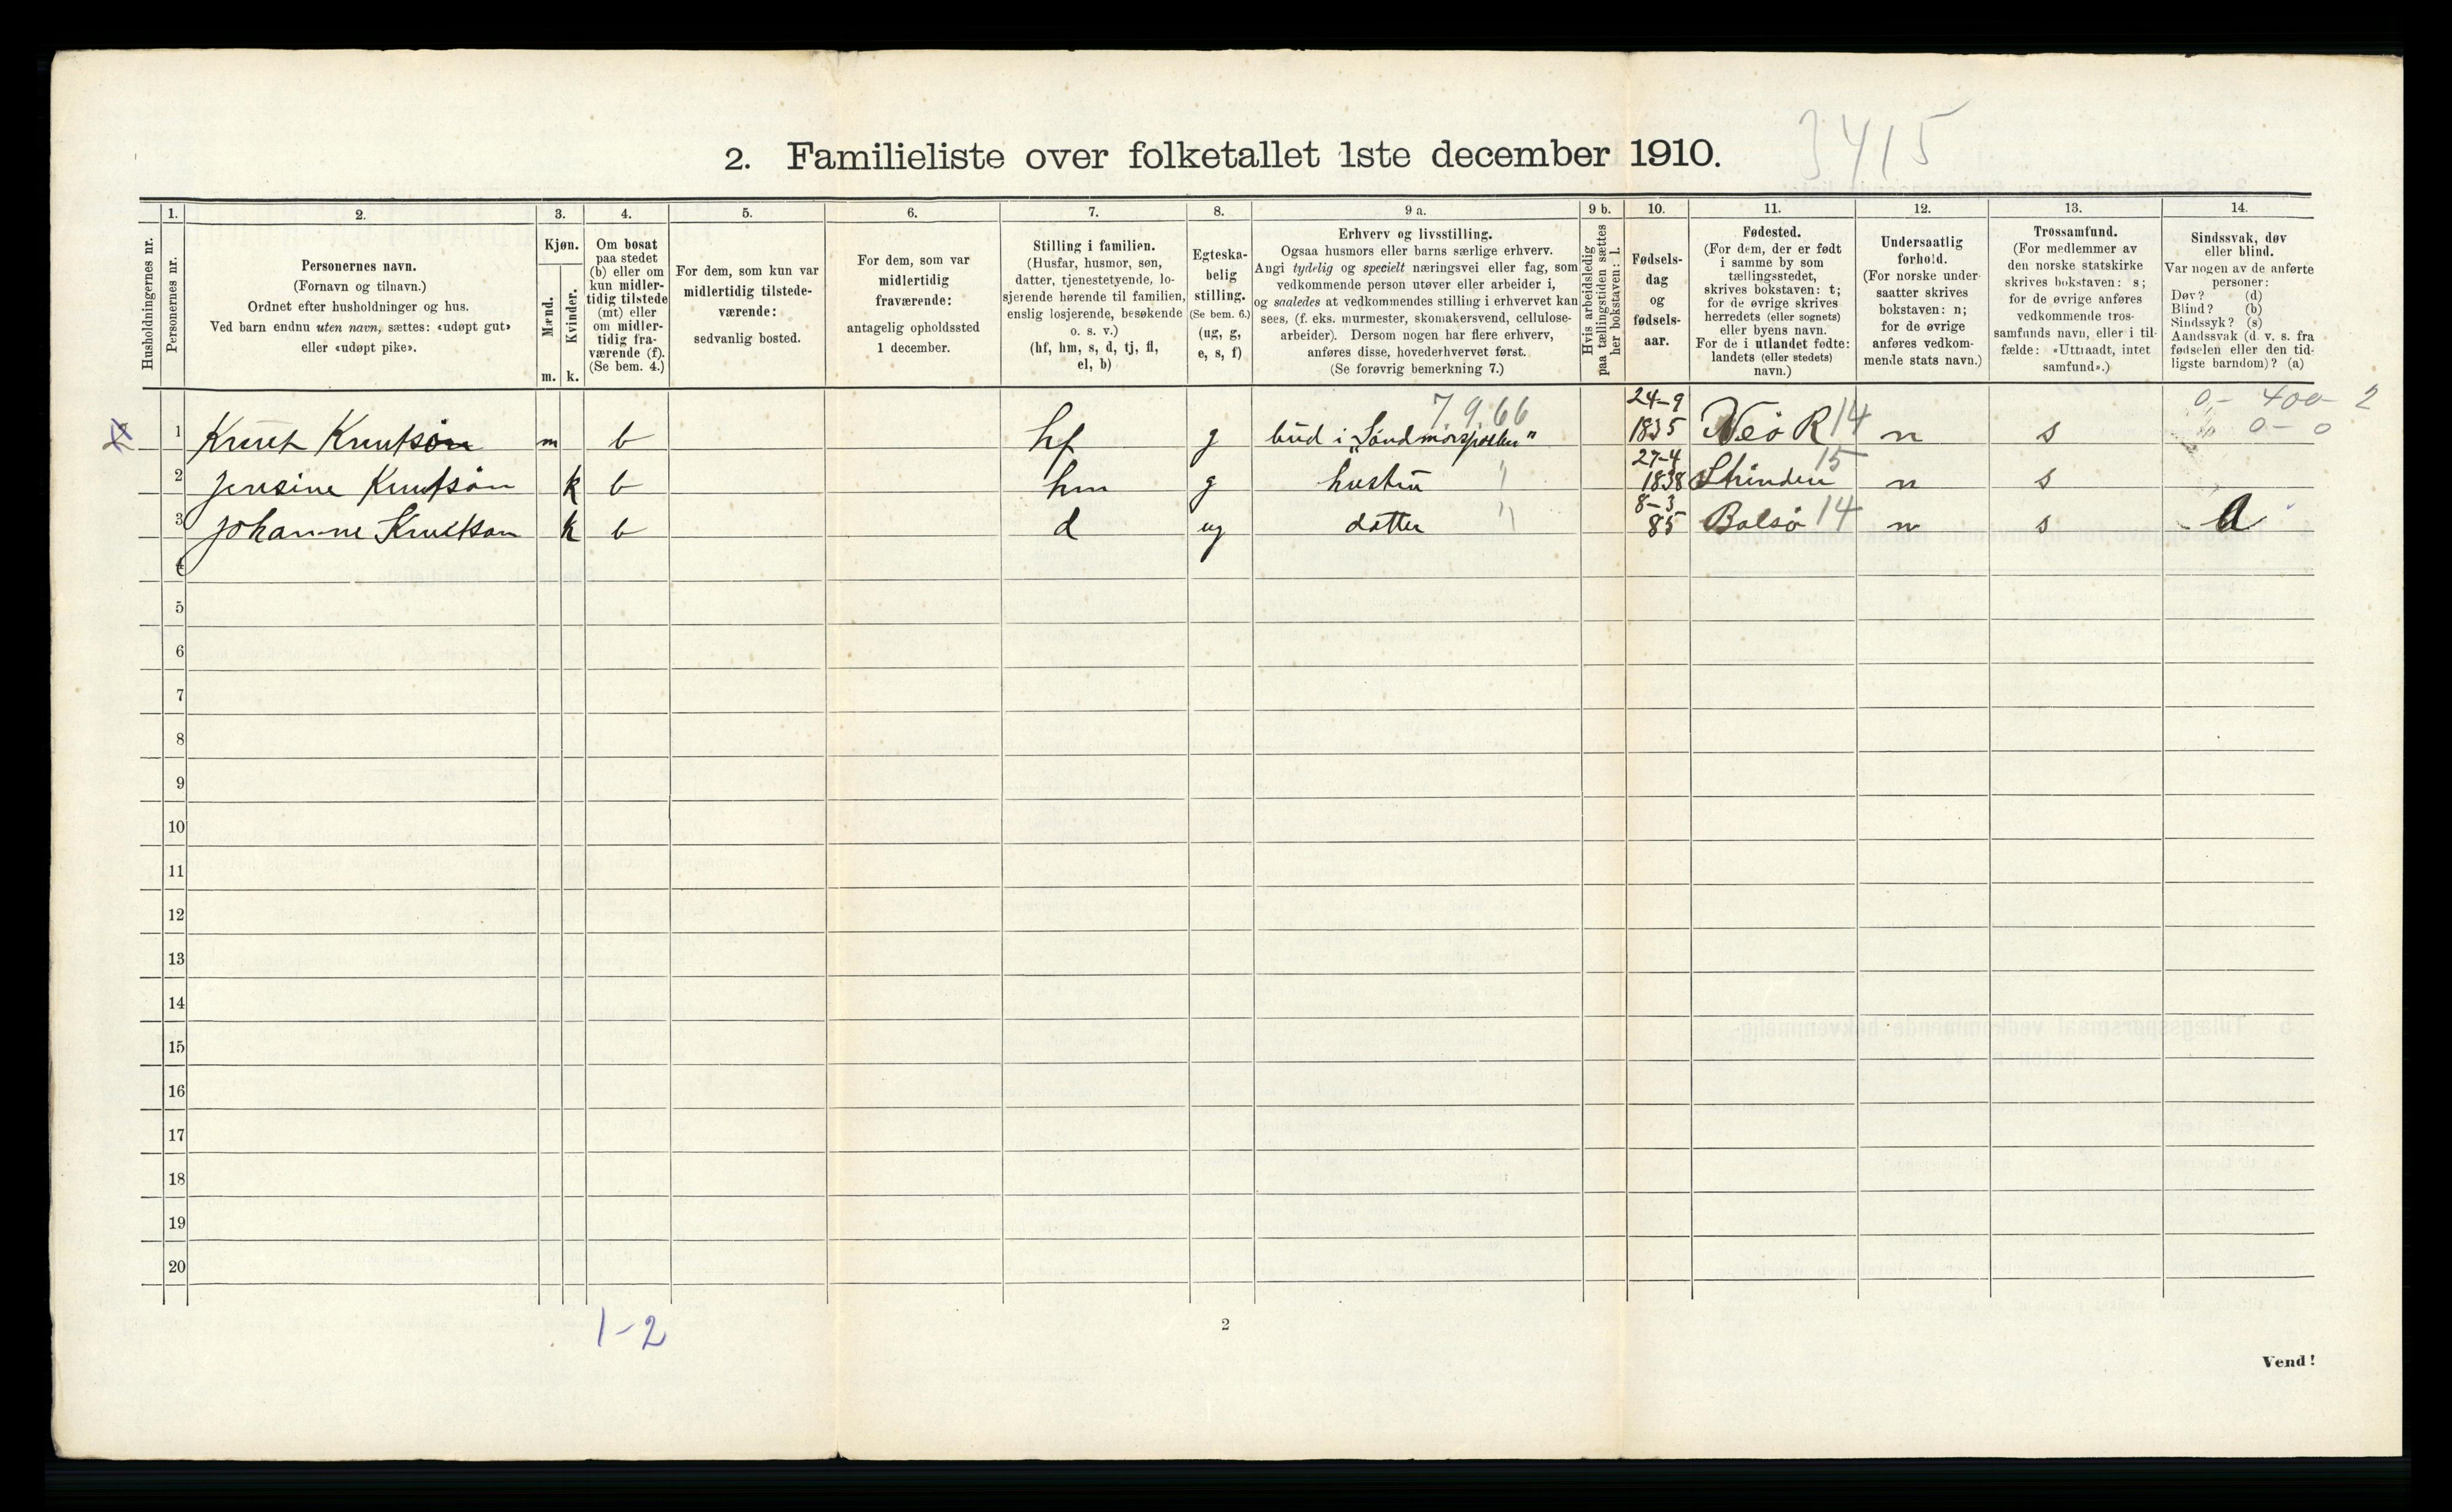 3415
2. Familieliste over folketallet 1ste december 1910.
Husholdningernes nr.
1.
Personernes nr.
2.
Personernes navn.
(Fornavn og tilnavn.)
Ordnet efter husholdninger og hus.
Ved barn endnu uten navn, sættes: «udøpt gut»
eller «udøpt pike».
3.
Kjøn.
Mænd.
Kvinder.
m. k.
4.
Om bosat
paa stedet
(b) eller om
kun midler-
tidig tilstede
(mt) eller
om midler-
tidig fra-
værende (f).
(Se bem. 4.)
5.
For dem, som kun var
midlertidig tilstede-
værende:
sedvanlig bosted.
6.
For dem, som var
midlertidig
fraværende:
antagelig opholdssted
1 december.
7.
Stilling i familien.
(Husfar, husmor, søn,
datter, tjenestetyende, lo-
sjerende hørende til familien,
enslig losjerende, besøkende
o. s. v.)
(hf, hm, s, d, tj, fl,
el, b)
8.
Egteska-
belig
stilling.
(Se bem. 6.)
(ug, g,
e, s, f)
9 a.
Erhverv og livsstilling.
Ogsaa husmors eller barns særlige erhverv.
Angi tydelig og specielt næringsvei eller fag, som
vedkommende person utøver eller arbeider i,
og saaledes at vedkommendes stilling i erhvervet kan
sees, (f. eks. murmester, skomakersvend, cellulose-
arbeider). Dersom nogen har flere erhverv,
anføres disse, hovederhvervet først.
(Se forøvrig bemerkning 7.)
9 b.
Hvis arbeidsledig
paa tællingstiden sættes
her bokstaven: l.
10.
Fødsels-
dag
og
fødsels-
aar.
11.
Fødested.
(For dem, der er født
i samme by som
tællingsstedet,
skrives bokstaven: t;
for de øvrige skrives
herredets (eller sognets)
eller byens navn.
For de i utlandet fødte:
landets (eller stedets)
navn.)
12.
Undersaatlig
forhold.
(For norske under-
saatter skrives
bokstaven: n;
for de øvrige
anføres vedkom-
mende stats navn.)
13.
Trossamfund.
(For medlemmer av
den norske statskirke
skrives bokstaven: s;
for de øvrige anføres
vedkommende tros-
samfunds navn, eller i til-
fælde: «Uttraadt, intet
samfund».)
14.
Sindssvak, døv
eller blind.
Var nogen av de anførte
personer:
Døv? (d)
Blind? (b)
Sindssyk? (s)
Aandssvak (d. v. s. fra
fødselen eller den tid-
ligste barndom)? (a)
7.9.66 24-9 0,- 400- 2
1 Knut Knutsøn m b hf g bud i "Søndmørsposten" 1835 Veö R 14 n s 0 - 0
27-4 15
2 Jensine Knutsøn k b hm g hustru " 1838 Strinden n s
8-3
3 Johanne Knutson k b d ug datter " 85 Bolsö 14 n s a
4
5
6
7
8
9
10
11
12
13
14
15
16
17
18
19
20
1-2
2
Vend!